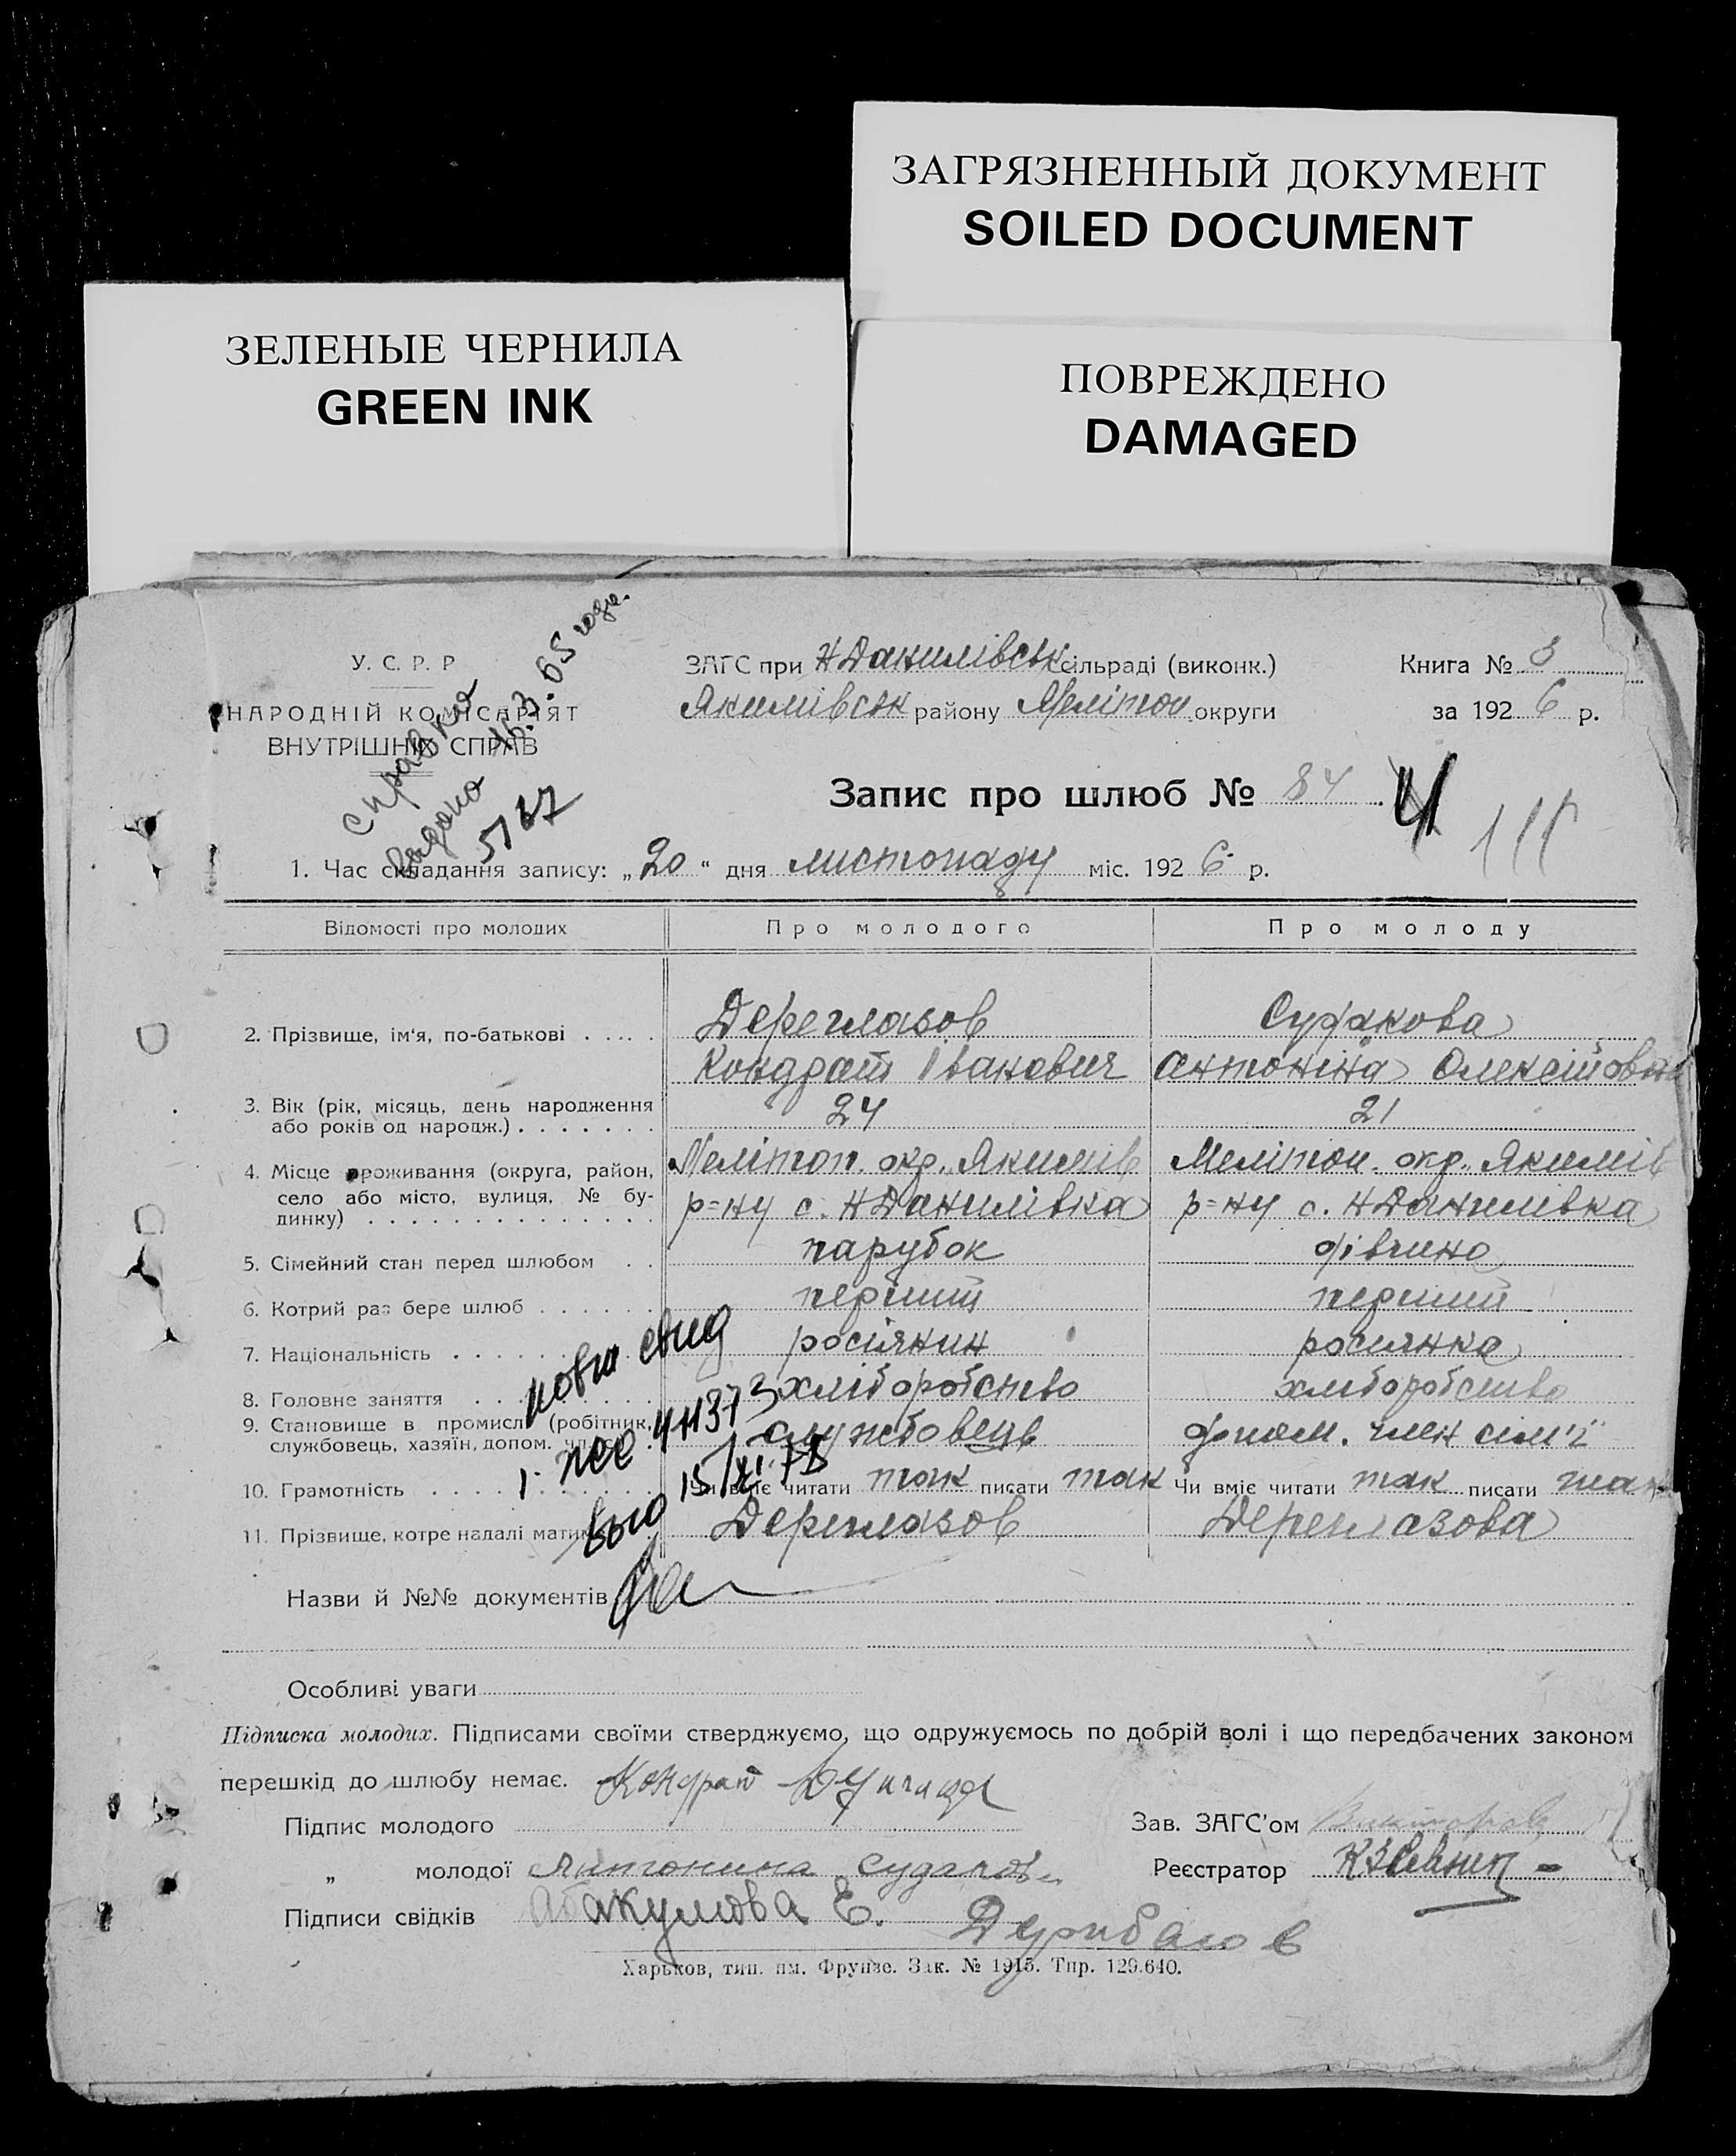 ЗАГРЯЗНЕННЫЙ ДОКУМЕНТ
SOILED DOCUMENT
ЗЕЛЕНЫЕ ЧЕРНИЛА
GREEN INK
ПОВРЕЖДЕНО
DAMAGED
У. С. Р. Р
НАРОДНІЙ КОМІСАРІЯТ
ВНУТРІШНІХ СПРАВ
справка
видана 16.3.65 года.
5167
ЗАГС при НДанилівськ сільраді (виконк.)
Якимівськ району Мелітоп. округи
Книга № 3
за 1926 р.
Запис про шлюб № 84 4
111
1. Час складання запису: „20“ дня листопаду міс. 1926 р.
Відомості про молодих Про молодого Про молоду
2. Прізвище, ім'я, по-батькові . . . . . Дереглазов Судакова
Кондрат Іванович Антоніна Олексіїовна
3. Вік (рік, місяць, день народження
або років од народж.) . . . . . . . 24 21
4. Місце проживання (округа, район, Мелітоп. окр. Якимів Мелітоп. окр. Якимів
село або місто, вулиця, № бу- р=ну с. НДанилівка р=ну с. НДанилівка
динку) . . . . . . . . . . . . . .
5. Сімейний стан перед шлюбом . . парубок дівчина
6. Котрий раз бере шлюб . . . . . . перший перший
7. Національність . . . . . росіянин росиянка
8. Головне заняття . . . . хліборобство хлиборобство
9. Становище в промислі (робітник,
службовець, хазяїн, допом. службовець допом. член сім'ї
10. Грамотність . . . . Чи вміє читати так писати так Чи вміє читати так писати так
11. Прізвище, котре надалі матим Дереглазов Дереглазова
повт свид
1-ЖС 411373
выд 15/XI.75
Назви й №№ документів
Особливі уваги
Підписка молодих. Підписами своїми стверджуємо, що одружуємось по добрій волі і що передбачених законом
перешкід до шлюбу немає. Кондрат
Підпис молодого
Зав. ЗАГС'ом
„ молодої Антонина Судакова
Реєстратор
Підписи свідків Абакумова Е.
Харьков, тип. им. Фрунзе. Зак. № 1915. Тир. 129.640.